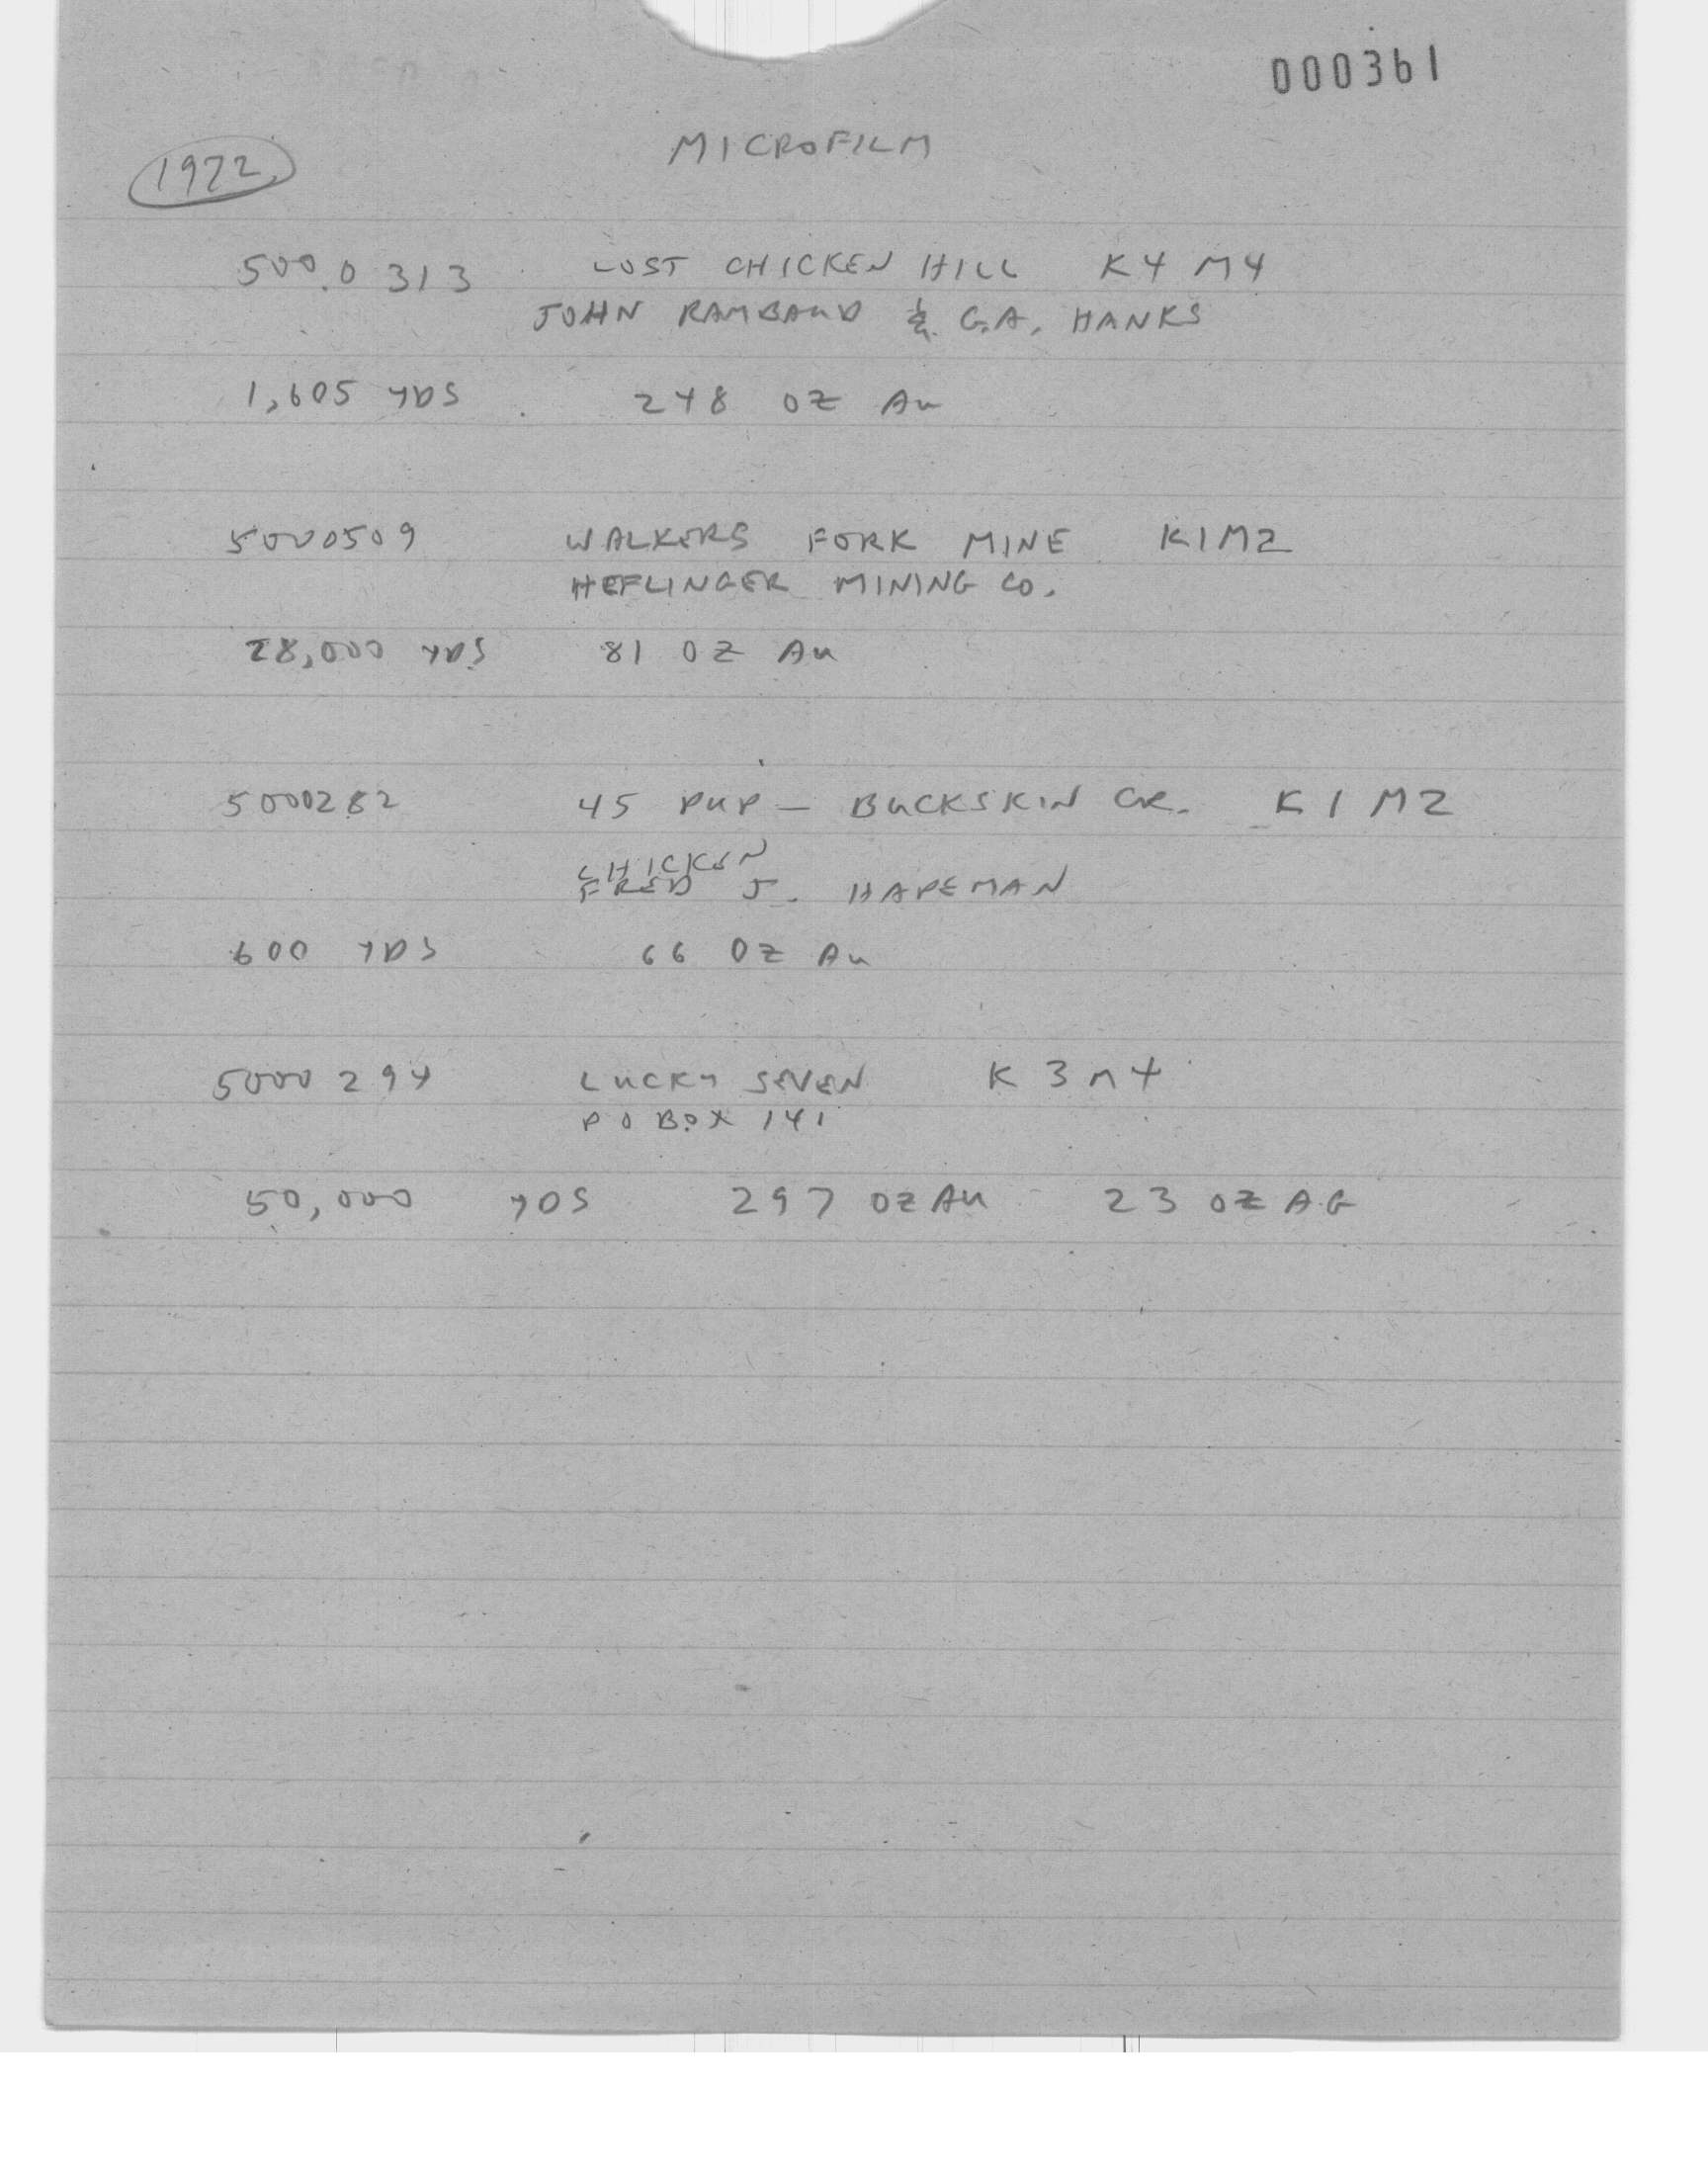 000361
MICROFILM
1972
500.0313 LOST CHICKEN HILL K4 M4
JOHN RAMBAUD & G.A. HANKS
1,605 YDS 248 OZ Au
5000509 WALKERS FORK MINE K1M2
HEFLINGER MINING CO.
28,000 YDS 81 OZ Au
5000282 45 PUP - BUCKSKIN CR. K1M2
CHICKEN
FRED J. HAPEMAN
600 YDS 66 OZ Au
5000294 LUCKY SEVEN K3M4
P O BOX 141
50,000 YDS 297 OZ Au 23 OZ AG